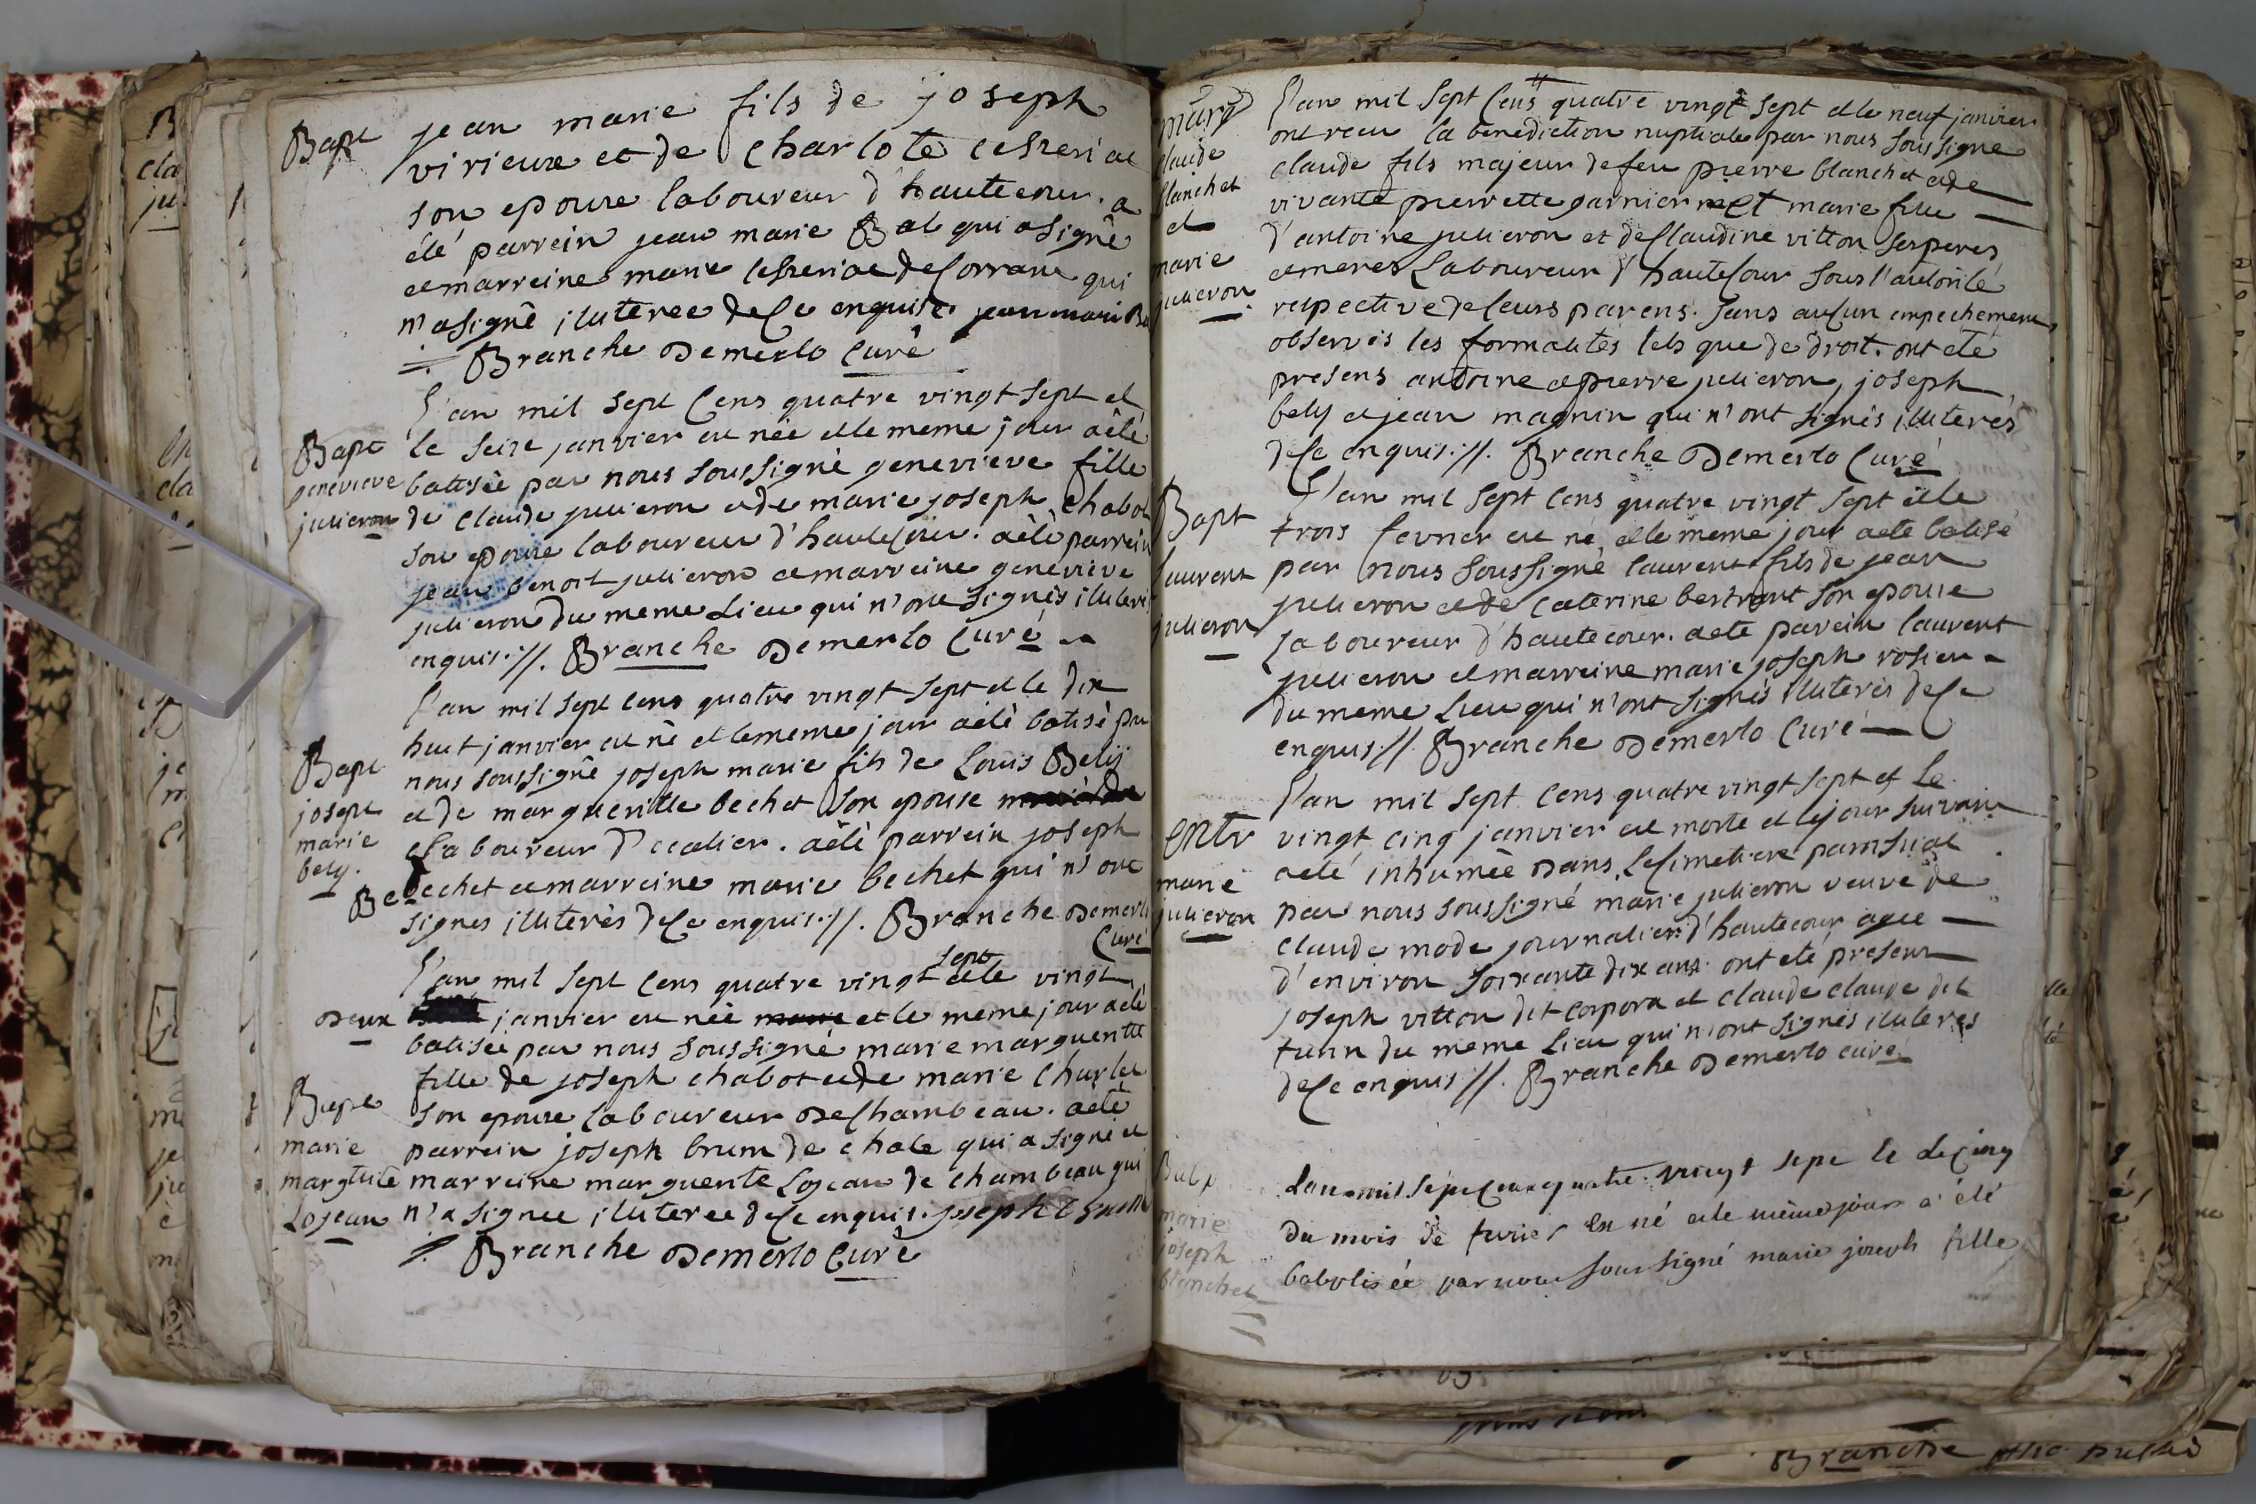 Bapt
jean marie fils de joseph
virieux et de Charlote
son epouse laboureur d'hautecour. a
été parrein jean marie Bal qui a signê
et marreine marie de Corrane qui
n'a signê illuteree de Ce enquise jean marie Ba
Branche Demerlo Curê
L'an mil sept Cens quatre vingt sept et
Bapt
genevieve
julieron
le seize janvier est née et le meme jour a êtê
batisêe par nous soussignê genevieve fille
de Claude julieron et de marie joseph Chabot
son epouse laboureur d'hauteCour. a êtê parrein
jean benoit julieron et marreine genevieve
julieron du meme Lieu qui n'ont signês illuteré
enquis.//. Branche Demerlo Curé
L'an mil sept cens quatre vingt sept et le dix
huit janvier est nè et le meme jour a êtê batisè par
Bapt
joseph
marie
bely.
nous soussignê joseph marie fils de Louis Belij
et de marguerite bechet son epouse
laboureur d' . a êtê parrein joseph
Bechet et marreine marie bechet qui n'ont
signes illuterès de Ce enquis.//. Branche Demerlo
Curé
L'an mil sept Cens quatre vingt sept et le vingt
Deux janvier est née et le meme jour a étè
batisée par nous soussigné marie marguerite
fille de joseph chabot et de marie Charlet
Bapt
marie
margtuite
Lojean
son epouse laboureur de Chambeau. a eté
parrein joseph brun de chale qui a signé et
marreine marguerite Lojean de chambeau qui
n'a signee illuteree de Ce enquis. joseph brun
//. Branche Demerlo Curê
marg
Claude
blanchet
et
marie
julieron
L'an mil sept Cens quatre vingt sept et le neuf janvier
ont recu la benediction nuptiale par nous soussigné
claude fils majeur de feu pierre blanchet et de
vivante pierrette garnier et marie fille
d'antoine julieron et de Claudine vitton ses peres
et meres Laboureur d'hauteCour sous l'autorité
respective de leurs parens. sans auCun empechemens
observés les formalités tels que de droit. ont eté
presens antoine et pierre julieron, joseph
bely et jean magnin qui n'ont signés illuterés
de Ce enquis.//. Branche Demerlo Curé
Bapt
laurent
julieron
L'an mil sept Cens quatre vingt sept et le
trois fevrier est né et le meme jour a eté batisé
par nous soussigné laurent fils de jean
julieron et de Caterine bertrant son epouse
Laboureur d'hautecour. a eté parein laurent
julieron et marreine marie joseph
du meme Lieu qui n'ont signés illuterés de Ce
enquis.//. Branche Demerlo Curé
L'an mil sept Cens quatre vingt sept et Le
entr
marie
julieron
vingt cinq janvier est morte et le jour suivant
a eté inhumée dans Le Simetiere
par nous soussigné marie julieron veuve de
claude mode journalier d'hautecour agee
d'environ soixante dix ans. ont eté presens
joseph vitton dit corpora et claude claude dit
turin du meme Lieu qui n'ont signés illuterés
de Ce enquis //. Branche Demerlo curé
Babt
marie
joseph
blanchet
L'an mil sept Cens quatre vingt sept le
du mois de est né et le même jour a été
babtisée par nous soussigné marie joseph fille
Branche